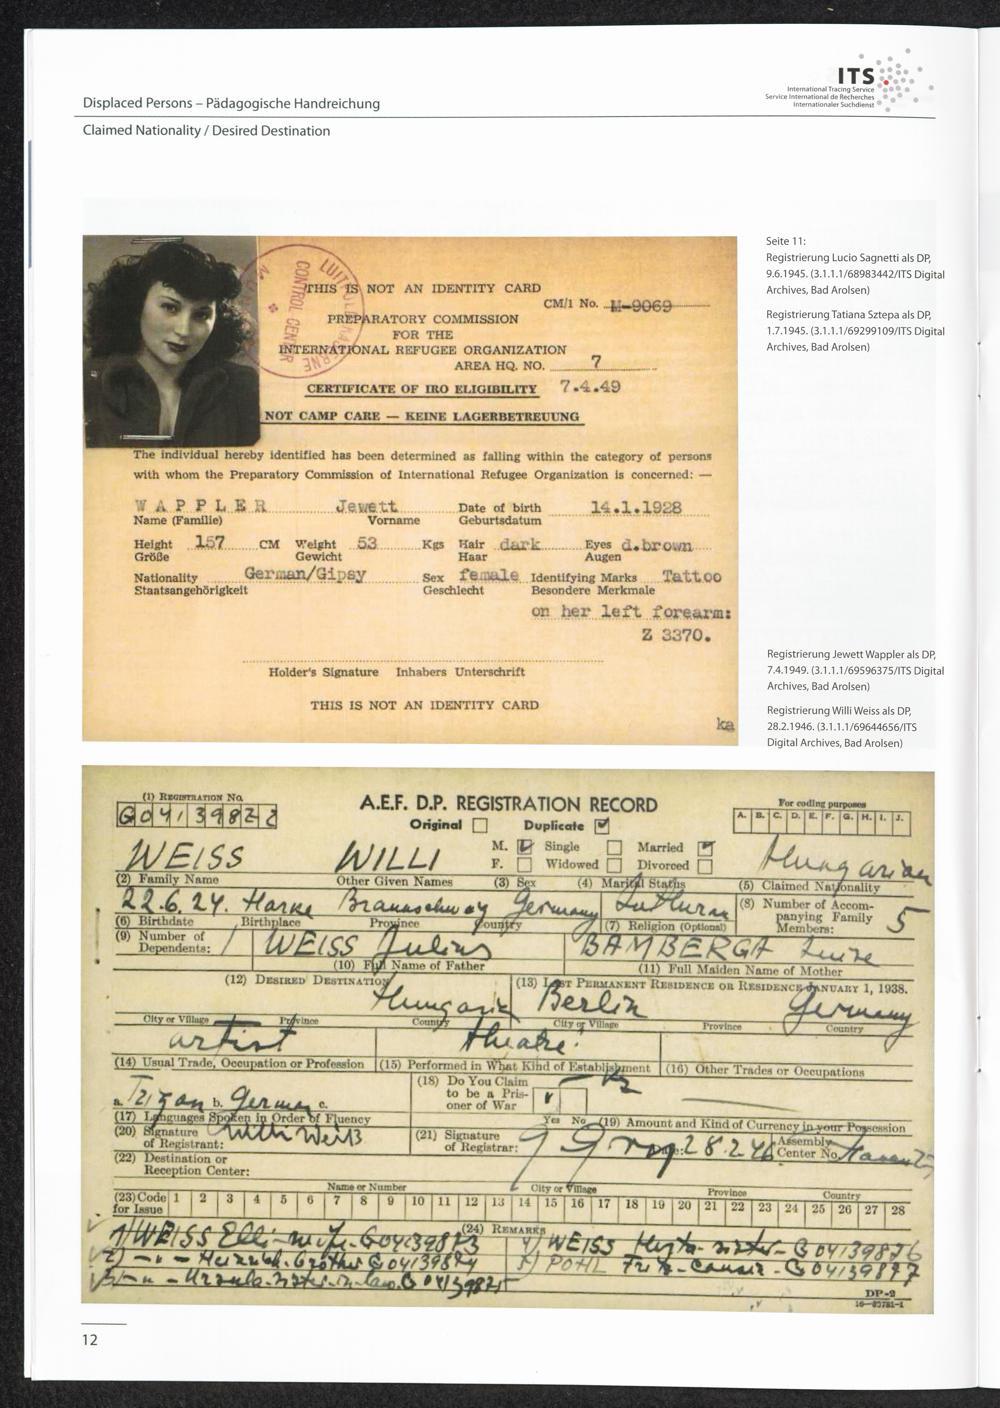 ITS
International Tracing Service
Service International de Recherches
Internationaler Suchdienst
Displaced Persons – Pädagogische Handreichung
Claimed Nationality / Desired Destination
LUITPOLDKASERNE
CONTROL CENTER
THIS IS NOT AN IDENTITY CARD
CM/1 No. M-9069
PREPARATORY COMMISSION
FOR THE
INTERNATIONAL REFUGEE ORGANIZATION
AREA HQ. NO. 7
CERTIFICATE OF IRO ELIGIBILITY 7.4.49
NOT CAMP CARE — KEINE LAGERBETREUUNG
The individual hereby identified has been determined as falling within the category of persons
with whom the Preparatory Commission of International Refugee Organization is concerned: —
WAPPLER Jewett Date of birth 14.1.1928
Name (Familie) Vorname Geburtsdatum
Height 157 CM Weight 53 Kgs Hair dark Eyes d.brown
Größe Gewicht Haar Augen
Nationality German/Gipsy Sex female Identifying Marks Tattoo
Staatsangehörigkeit Geschlecht Besondere Merkmale
on her left forearm:
Z 3370.
Holder's Signature Inhabers Unterschrift
THIS IS NOT AN IDENTITY CARD
ka
Seite 11:
Registrierung Lucio Sagnetti als DP,
9.6.1945. (3.1.1.1/68983442/ITS Digital
Archives, Bad Arolsen)
Registrierung Tatiana Sztepa als DP,
1.7.1945. (3.1.1.1/69299109/ITS Digital
Archives, Bad Arolsen)
Registrierung Jewett Wappler als DP,
7.4.1949. (3.1.1.1/69596375/ITS Digital
Archives, Bad Arolsen)
Registrierung Willi Weiss als DP,
28.2.1946. (3.1.1.1/69644656/ITS
Digital Archives, Bad Arolsen)
(1) REGISTRATION No.
G04139822
A.E.F. D.P. REGISTRATION RECORD
Original Duplicate
For coding purposes
A. B. C. D. E. F. G. H. I. J.
WEISS WILLI M. Single Married Hungarian
F. Widowed Divorced
(2) Family Name Other Given Names (3) Sex (4) Marital Status (5) Claimed Nationality
22.6.24. Braunschweig Germany
(6) Birthdate Birthplace Province Country (7) Religion (Optional)
(8) Number of Accom-
panying Family
Members: 5
(9) Number of
Dependents: 1
WEISS Julius BAMBERGA
(10) Full Name of Father (11) Full Maiden Name of Mother
(12) DESIRED DESTINATION (13) LAST PERMANENT RESIDENCE OR RESIDENCE JANUARY 1, 1938.
Berlin Germany
City or Village Province Country City or Village Province Country
artist theatre.
(14) Usual Trade, Occupation or Profession (15) Performed in What Kind of Establishment (16) Other Trades or Occupations
a. b. German c.
(17) Languages Spoken in Order of Fluency
(18) Do You Claim
to be a Pris-
oner of War
Yes No
(19) Amount and Kind of Currency in your Possession
(20) Signature
of Registrant: Willi Weiß
(21) Signature
of Registrar:
28.2.46 Assembly
Center No.
(22) Destination or
Reception Center:
Name or Number City or Village Province Country
(23) Code
for Issue
1 2 3 4 5 6 7 8 9 10 11 12 13 14 15 16 17 18 19 20 21 22 23 24 25 26 27 28
(24) REMARKS
1) WEISS Elli - wife - G04139873
2) - " - Heinrich - brother G04139874
3) - " - Ursula - sister-in-law. G04139875
4) WEISS - sister - G04139876
5) POHL G04139877
DP-2
12